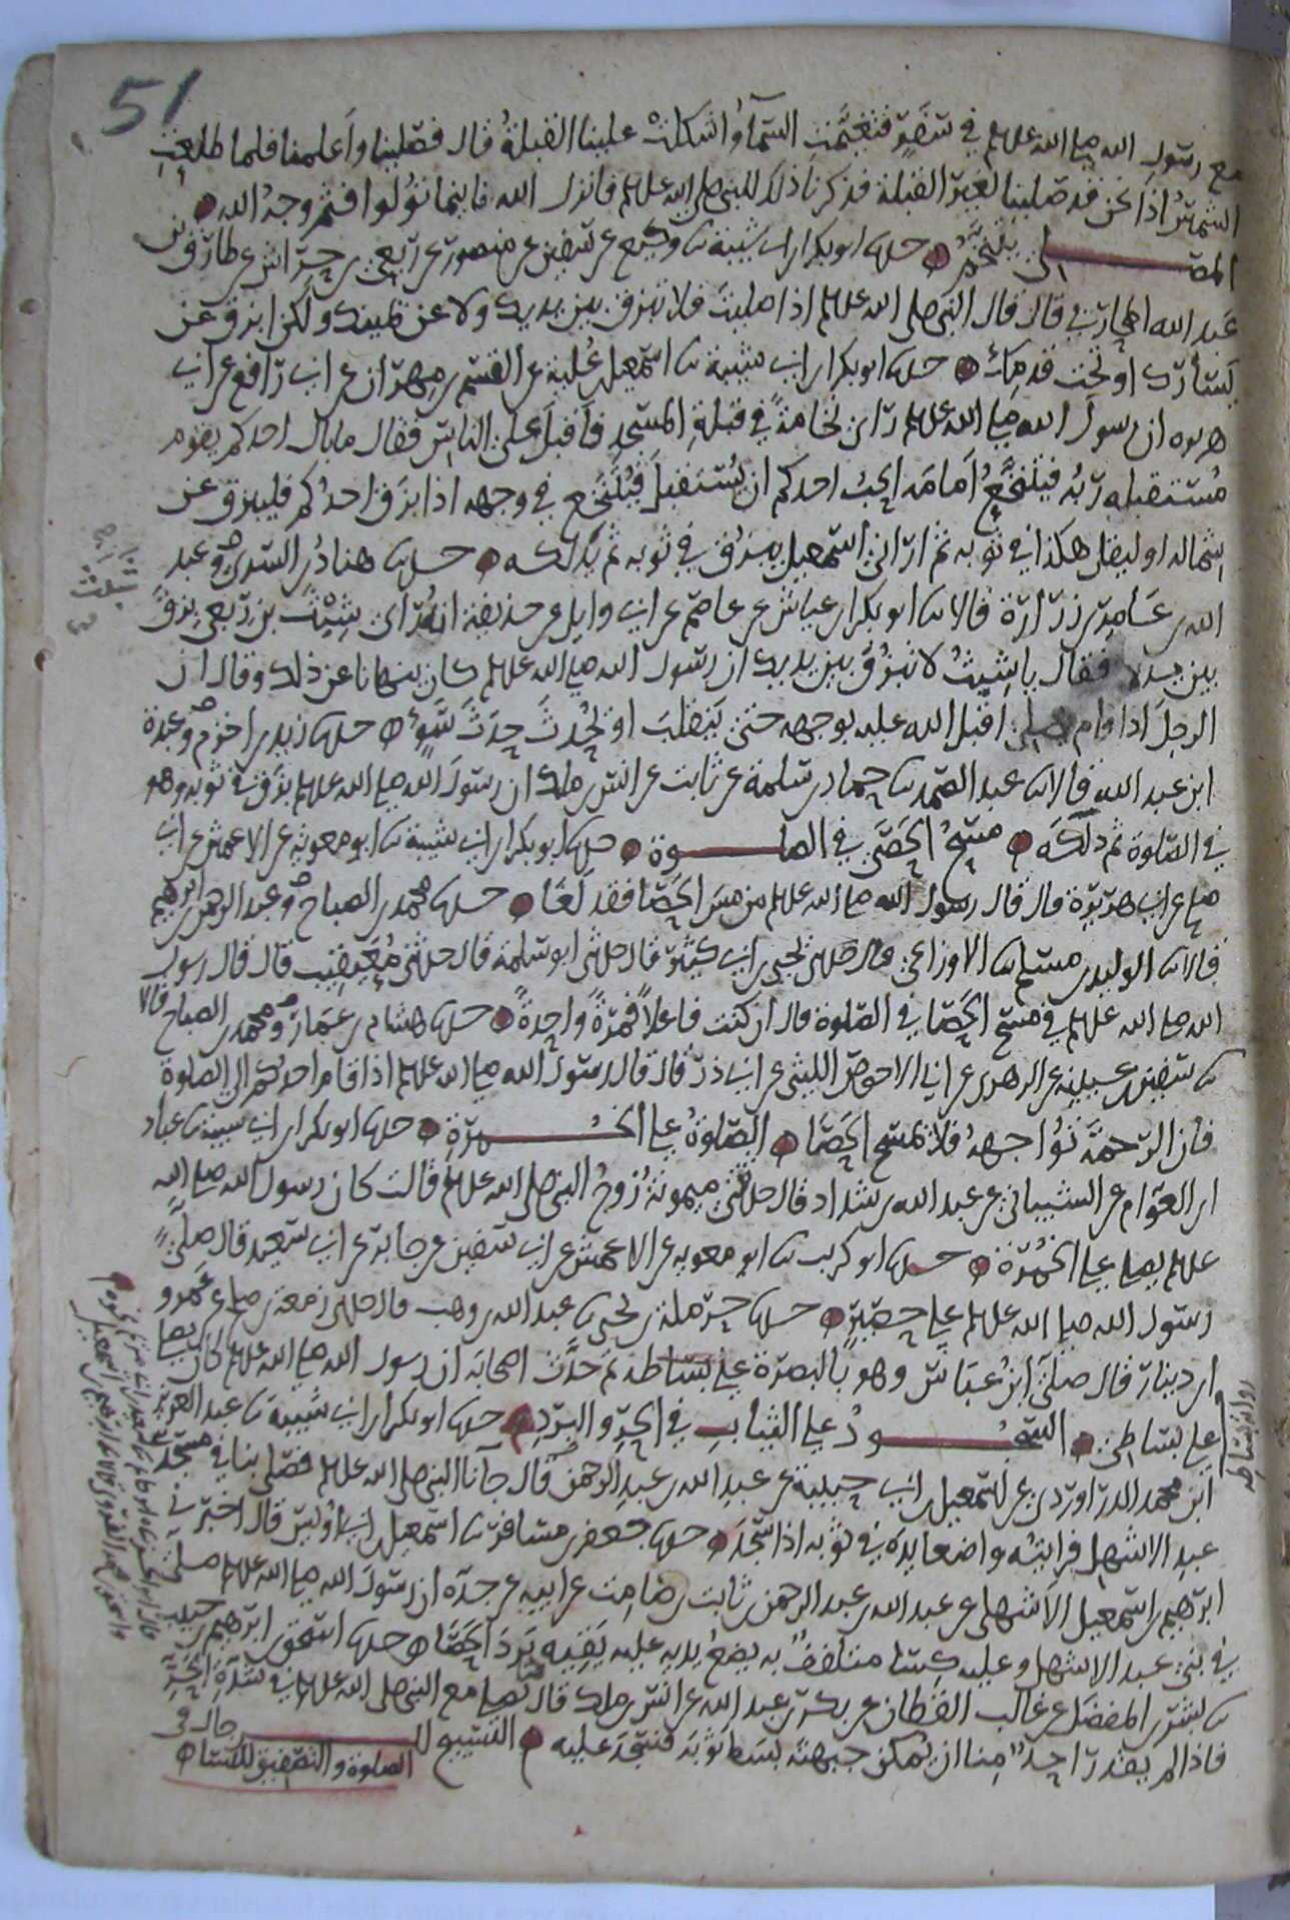 51
مع رسول الله صلى الله علىلم في سفر فتغيمت السماء واشكلت علينا القبلة قال فصلينا واعلمنا فلما طلعت
الشمس اذا نحن قد صلينا لغير القبلة فذكرنا ذلك للنبي صلى الله علىلم فانزل الله فاينما تولوا فثم وجه الله
المصلى يتنخم حدثنا ابو بكر ابن ابي شيبة ثنا وكيع عن سفين عن منصور عن ربعي بن حراش عن طارق بن
عبد الله المحاربي قال قال النبي صلى الله علىلم اذا صليت فلا تبزق بين يديك ولا عن يمينك ولكن ابزق عن
يسارك او تحت قدمك حدثنا ابو بكر ابن ابي شيبة ثنا اسمعيل بن علية عن القسم بن مهران عن ابي رافع عن ابي
هريره ان رسول الله صلى الله علىلم راى نخامة في قبلة المسجد فاقبل على الناس فقال ما بال احدكم يقوم
مستقبله ربه فيتنخع امامه ايحب احدكم ان يستقبل فيتنخع في وجهه اذا بزق احدكم فليبزق عن
شماله او ليقل هكذا في ثوبه ثم اراني اسمعيل يبزق في ثوبه ثم يدلكه حدثنا هناد بن السري وعبد
الله بن عامر بن زرارة قالا ثنا ابو بكر بن عياش عن عاصم عن ابي وايل عن حذيفة انه راى شبث بن ربعي بزق
بين يديه فقال يا شبث لا تبزق بين يديك ان رسول الله صلى الله علىلم كان ينهانا عن ذلك وقال ان
الرجل اذا قام يصلي اقبل الله عليه بوجهه حتى ينقلب او يحدث حدث سوء حدثنا زيد بن اخزم وعبدة
ابن عبد الله قالا ثنا عبد الصمد ثنا حماد بن سلمة عن ثابت عن انس بن ملك ان رسول الله صلى الله علىلم بزق في ثوبه وهو
في الصلوة ثم دلكه مسح الحصى في الصلوة حدثنا ابو بكر ابن ابي شيبة ثنا ابو معوية عن الاعمش عن ابي
صالح عن ابي هريرة قال قال رسول الله صلى الله علىلم من مس الحصا فقد لغا حدثنا محمد بن الصباح وعبد الرحمن بن ابرهيم
قالا ثنا الوليد بن مسلم ثنا الاوزاعي قال حدثني يحيى بن ابي كثير قال حدثني ابو سلمة قال حدثني معيقيب قال قال رسول
الله صلى الله علىلم في مسح الحصا في الصلوة قال ان كنت فاعلا فمرة واحدة حدثنا هشام بن عمار ومحمد بن الصباح قالا
ثنا سفين بن عيينة عن الزهري عن ابي الاحوص الليثي عن ابي ذر قال قال رسول الله صلى الله علىلم اذا قام احدكم الى الصلوة
فان الرحمة تواجهه فلا تمسح الحصا الصلوة على الخمرة حدثنا ابو بكر ابن ابي شيبة ثنا عباد
ابن العوام عن الشيباني عن عبد الله بن شداد قال حدثتني ميمونة زوج النبي صلى الله علىلم قالت كان رسول الله صلى الله
علىلم يصلي على الخمرة حدثنا ابو كريب ثنا ابو معوية عن الاعمش عن ابي سفين عن جابر عن ابي سعيد قال صلى
رسول الله صلى الله علىلم على حصير حدثنا حرملة بن يحيى ثنا عبد الله بن وهب قال حدثني زمعة بن صالح عن عمرو
ابن دينار قال صلى ابن عباس وهو بالبصرة على بساطه ثم حدث اصحابه ان رسول الله صلى الله علىلم كان يصلي
على بساطه السجود على الثياب في الحر والبرد حدثنا ابو بكر ابن ابي شيبة ثنا عبد العزيز
ابن محمد الدراوردي عن اسمعيل بن ابي حبيبة عن عبد الله بن عبد الرحمن قال جانا النبي صلى الله علىلم فصلى بنا في مسجد بني
عبد الاشهل فرايته واضعا يديه في ثوبه اذا سجد حدثنا جعفر بن مسافر ثنا اسمعيل بن ابي اويس قال اخبرني
ابرهيم بن اسمعيل الاشهلي عن عبد الله بن عبد الرحمن بن ثابت بن صامت عن ابيه عن جده ان رسول الله صلى الله علىلم صلى
في بني عبد الاشهل وعليه كسا متلفف به يضع يديه عليه يقيه برد الحصا حدثنا اسحق بن ابرهيم بن حبيب
ثنا بشر بن المفضل عن غالب القطان عن بكر بن عبد الله عن انس بن ملك قال كنا نصلي مع النبي صلى الله علىلم في شدة الحر
فاذا لم يقدر احد منا ان يمكن جبهته بسط ثوبه فسجد عليه التسبيح للرجال في
الصلوة والتصفيق للنساء